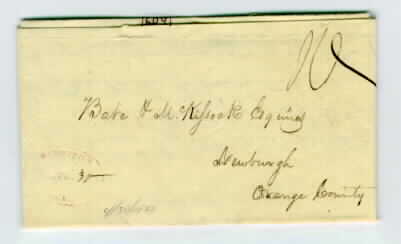 10
Bate & McKissock Esquires
Newburgh
Orange County